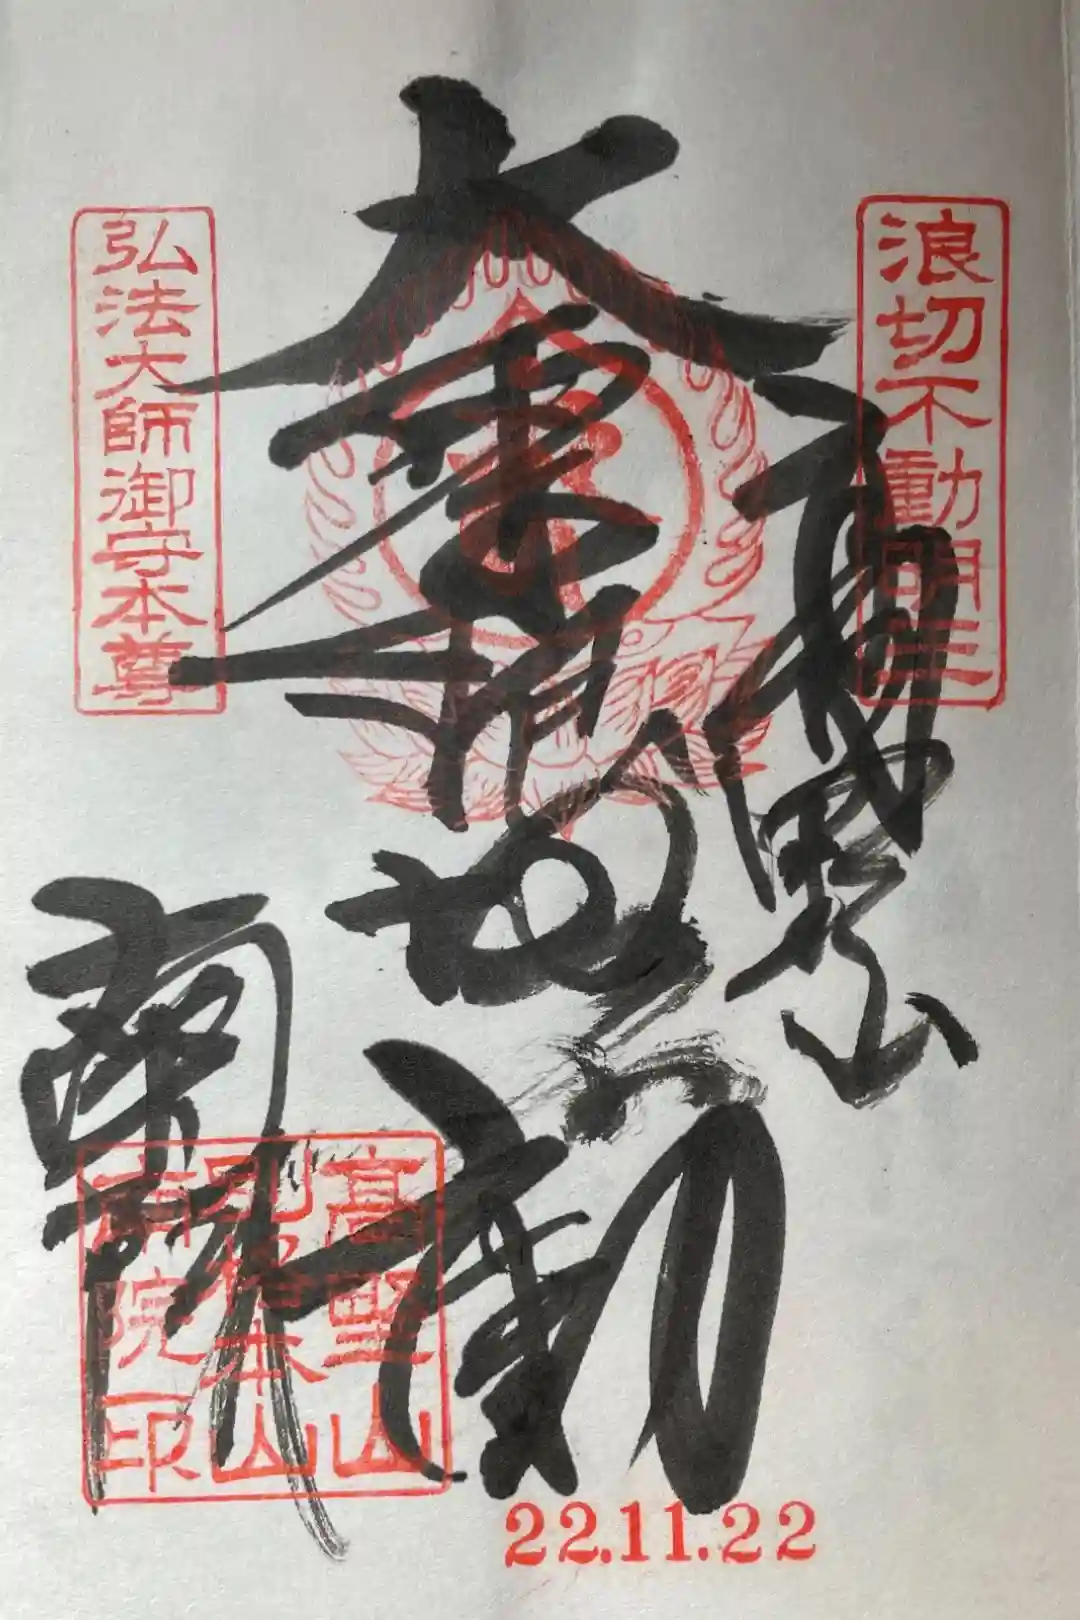 浪切不動明王
高野山
大乗
浪切
不動
南院
弘法大師御守本尊
高野山
別格本山
南院印
22.11.22